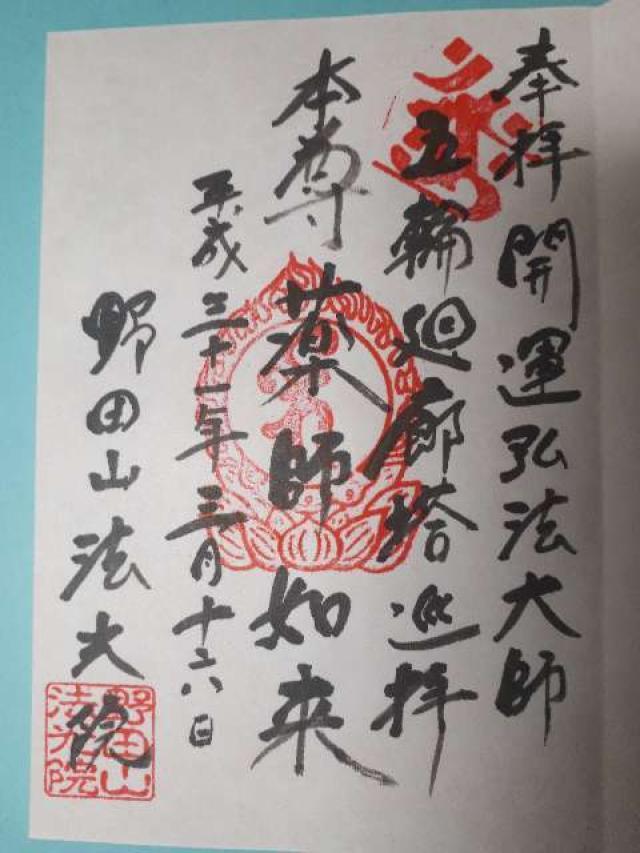 奉拝 開運弘法大師
五輪廻廊塔巡拝
本尊 薬師如来
平成三十一年三月十六日
野田山法光院
野田山
法光院